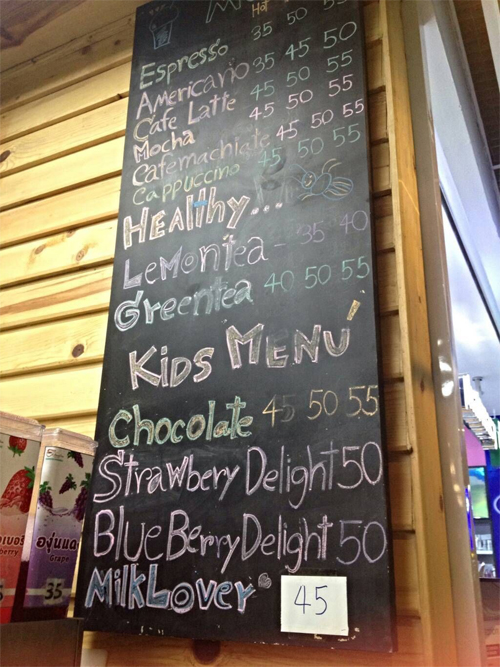 Hot
35 50 55
Espresso 35 45 50
Americano 45 50 55
Cafe Latte 45 50 55
Mocha 45 50 55
Cafemachiate 45 50 55
Cappuccino
Healthy...
Lemontea - 35 40
Greentea 40 50 55
Kids Menu
Chocolate 45 50 55
Strawbery Delight 50
BlueBerry Delight 50
MilkLover 45
องุ่นแดง
Grape
35